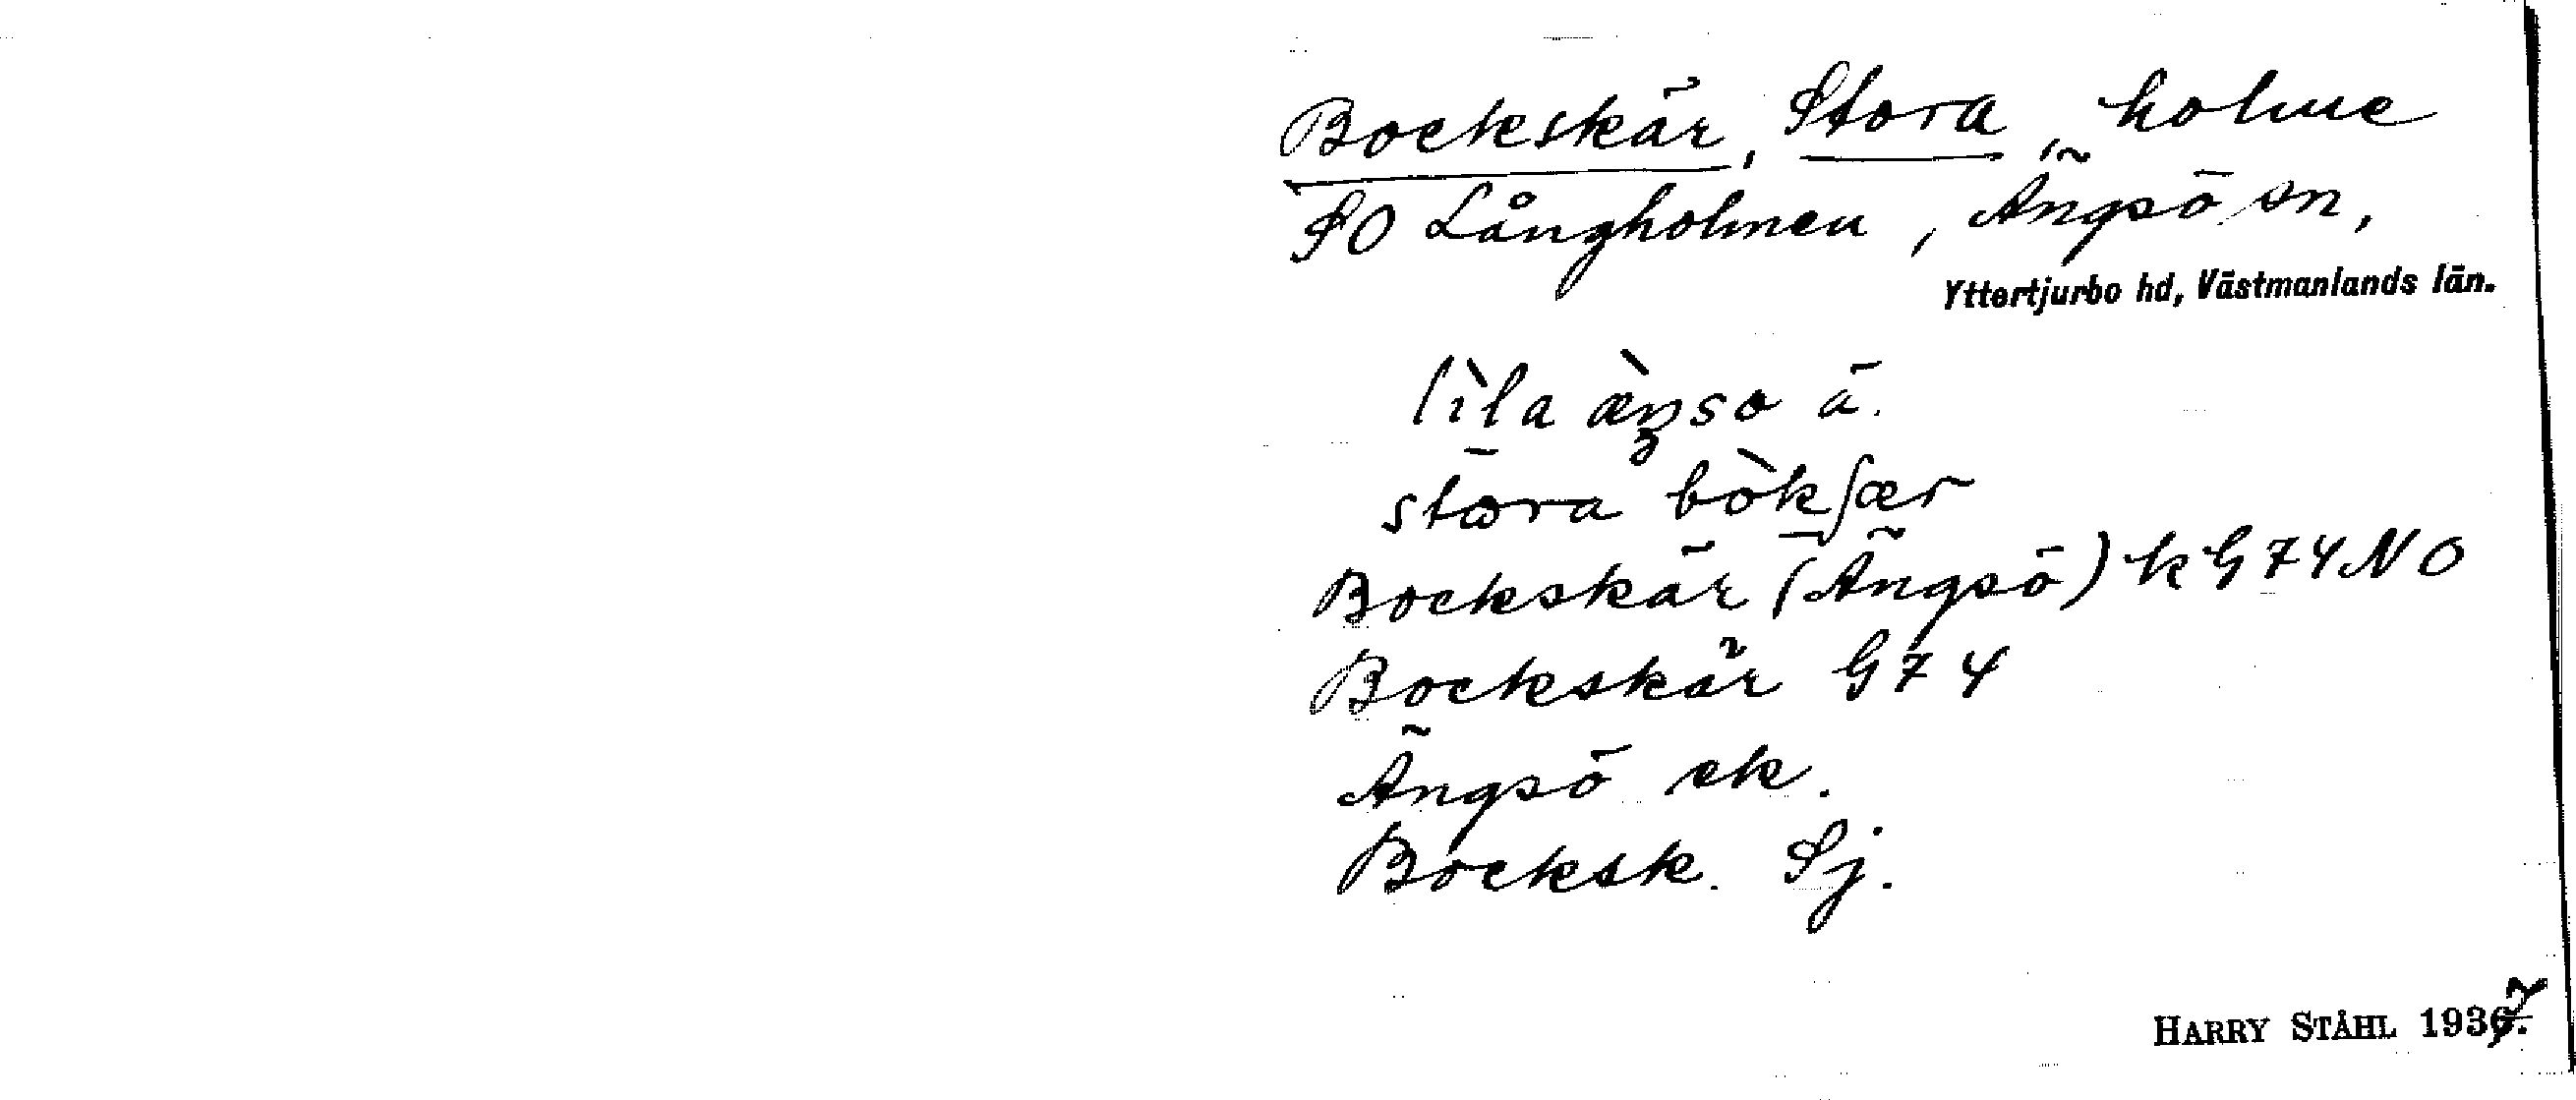 Bockskär, Stora, holme
SO Långholmen, Ängsö sn,
Yttertjurbo hd, Västmanlands län.
lìla æ̀ŋso ä.
stōra bòkʃær
Bockskär (Ängsö) k G74NO
Bockskär G74
Ängsö ek.
Bocksk. Sj.
HARRY STÅHL 1937.